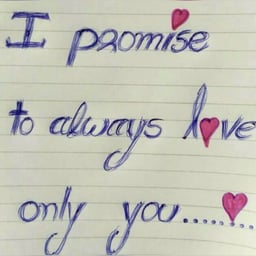 I promise
to always love
only you......